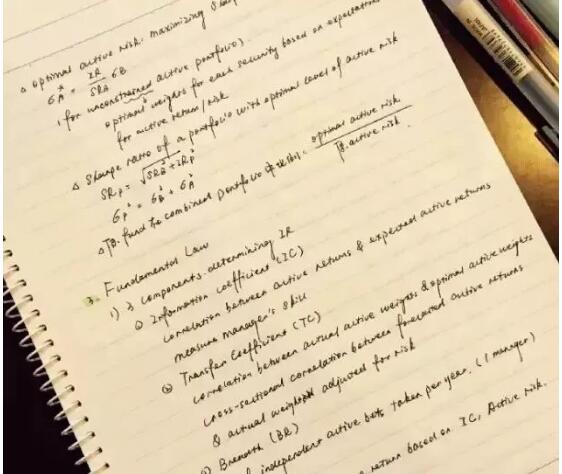 △ optimal active risk: maximizing Sharp
σA* = IR/SRB σB
(for unconstrained active portfolio).
optimal weights for each security based on expectations
for active return/risk
△ Sharpe ratio of a portfolio with optimal level of active risk
SRP = √SRB² + IRP²
σP² = σB² + σA²
fund to combined portfolio optimal active risk / active risk.
3. Fundamental Law
1) 3 components determining IR
① Information coefficient (IC)
correlation between active returns & expected active returns
measure manager's skill
② Transfer Coefficient (TC)
correlation between actual active weights & optimal active weights
cross-sectional correlation between forecasted active returns
& actual weights adjusted for risk
Breadth (BR)
independent active bets taken per year. (1 manager)
return based on IC, Active risk.